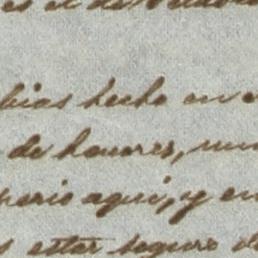 es el de
bias hecho en
de honores, mu
perio aqui, y en
s estar seguro de